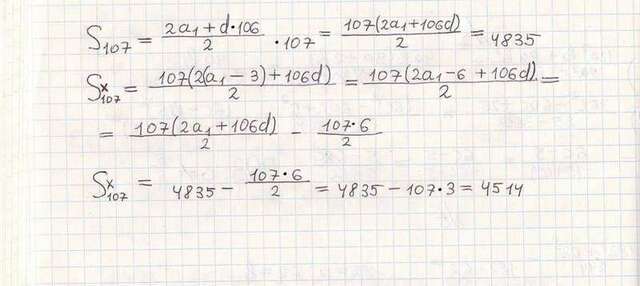 S₁₀₇ = (2a₁ + d·106)/2 · 107 = 107(2a₁+106d)/2 = 4835
Sˣ₁₀₇ = 107(2(a₁ − 3) + 106d)/2 = 107(2a₁ − 6 + 106d)/2 =
= 107(2a₁ + 106d)/2 − 107·6/2
Sˣ₁₀₇ = 4835 − 107·6/2 = 4835 − 107·3 = 4514